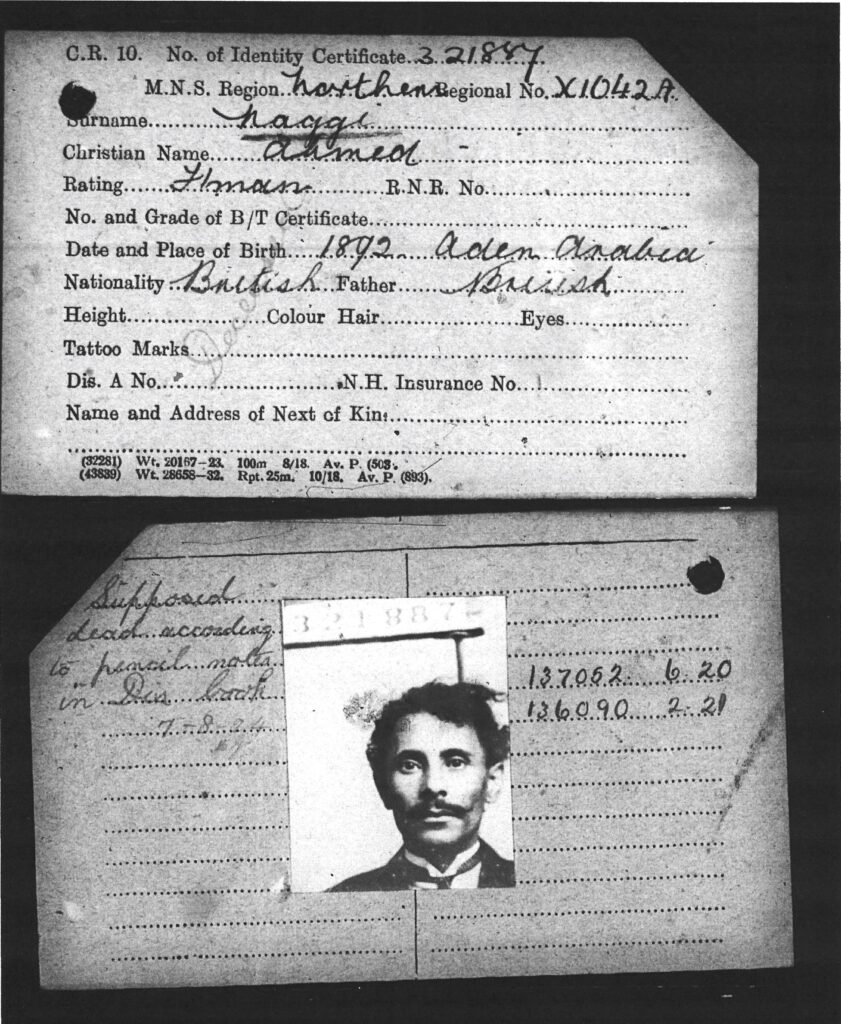 C.R. 10. No. of Identity Certificate. 321887.
M.N.S. Region. Northern Regional No. X1042A.
Surname Naggi
Christian Name Ahmed
Rating F/man. R.N.R. No.
No. and Grade of B/T Certificate
Date and Place of Birth 1892 Aden Arabia
Nationality British Father British
Height Colour Hair Eyes
Tattoo Marks
Dis. A No. N.H. Insurance No.
Name and Address of Next of Kin:
(32281) Wt. 20167—23. 100m 8/18. Av. P. (503.
(43839) Wt. 28658—32. Rpt. 25m. 10/18. Av. P. (893).
Supposed
dead according
to pencil notes
in Dis book
7-8-24
321887
137052 6 20
136090 2 21